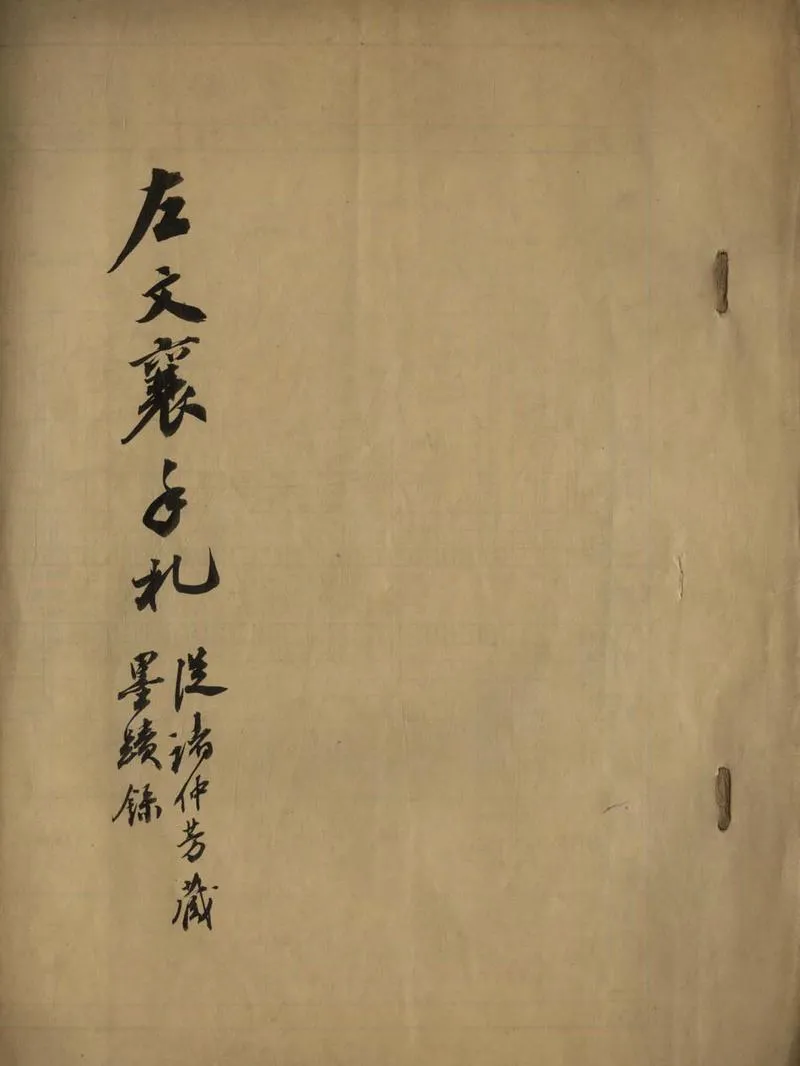 左文襄手札
從諸仲芳藏
墨蹟錄